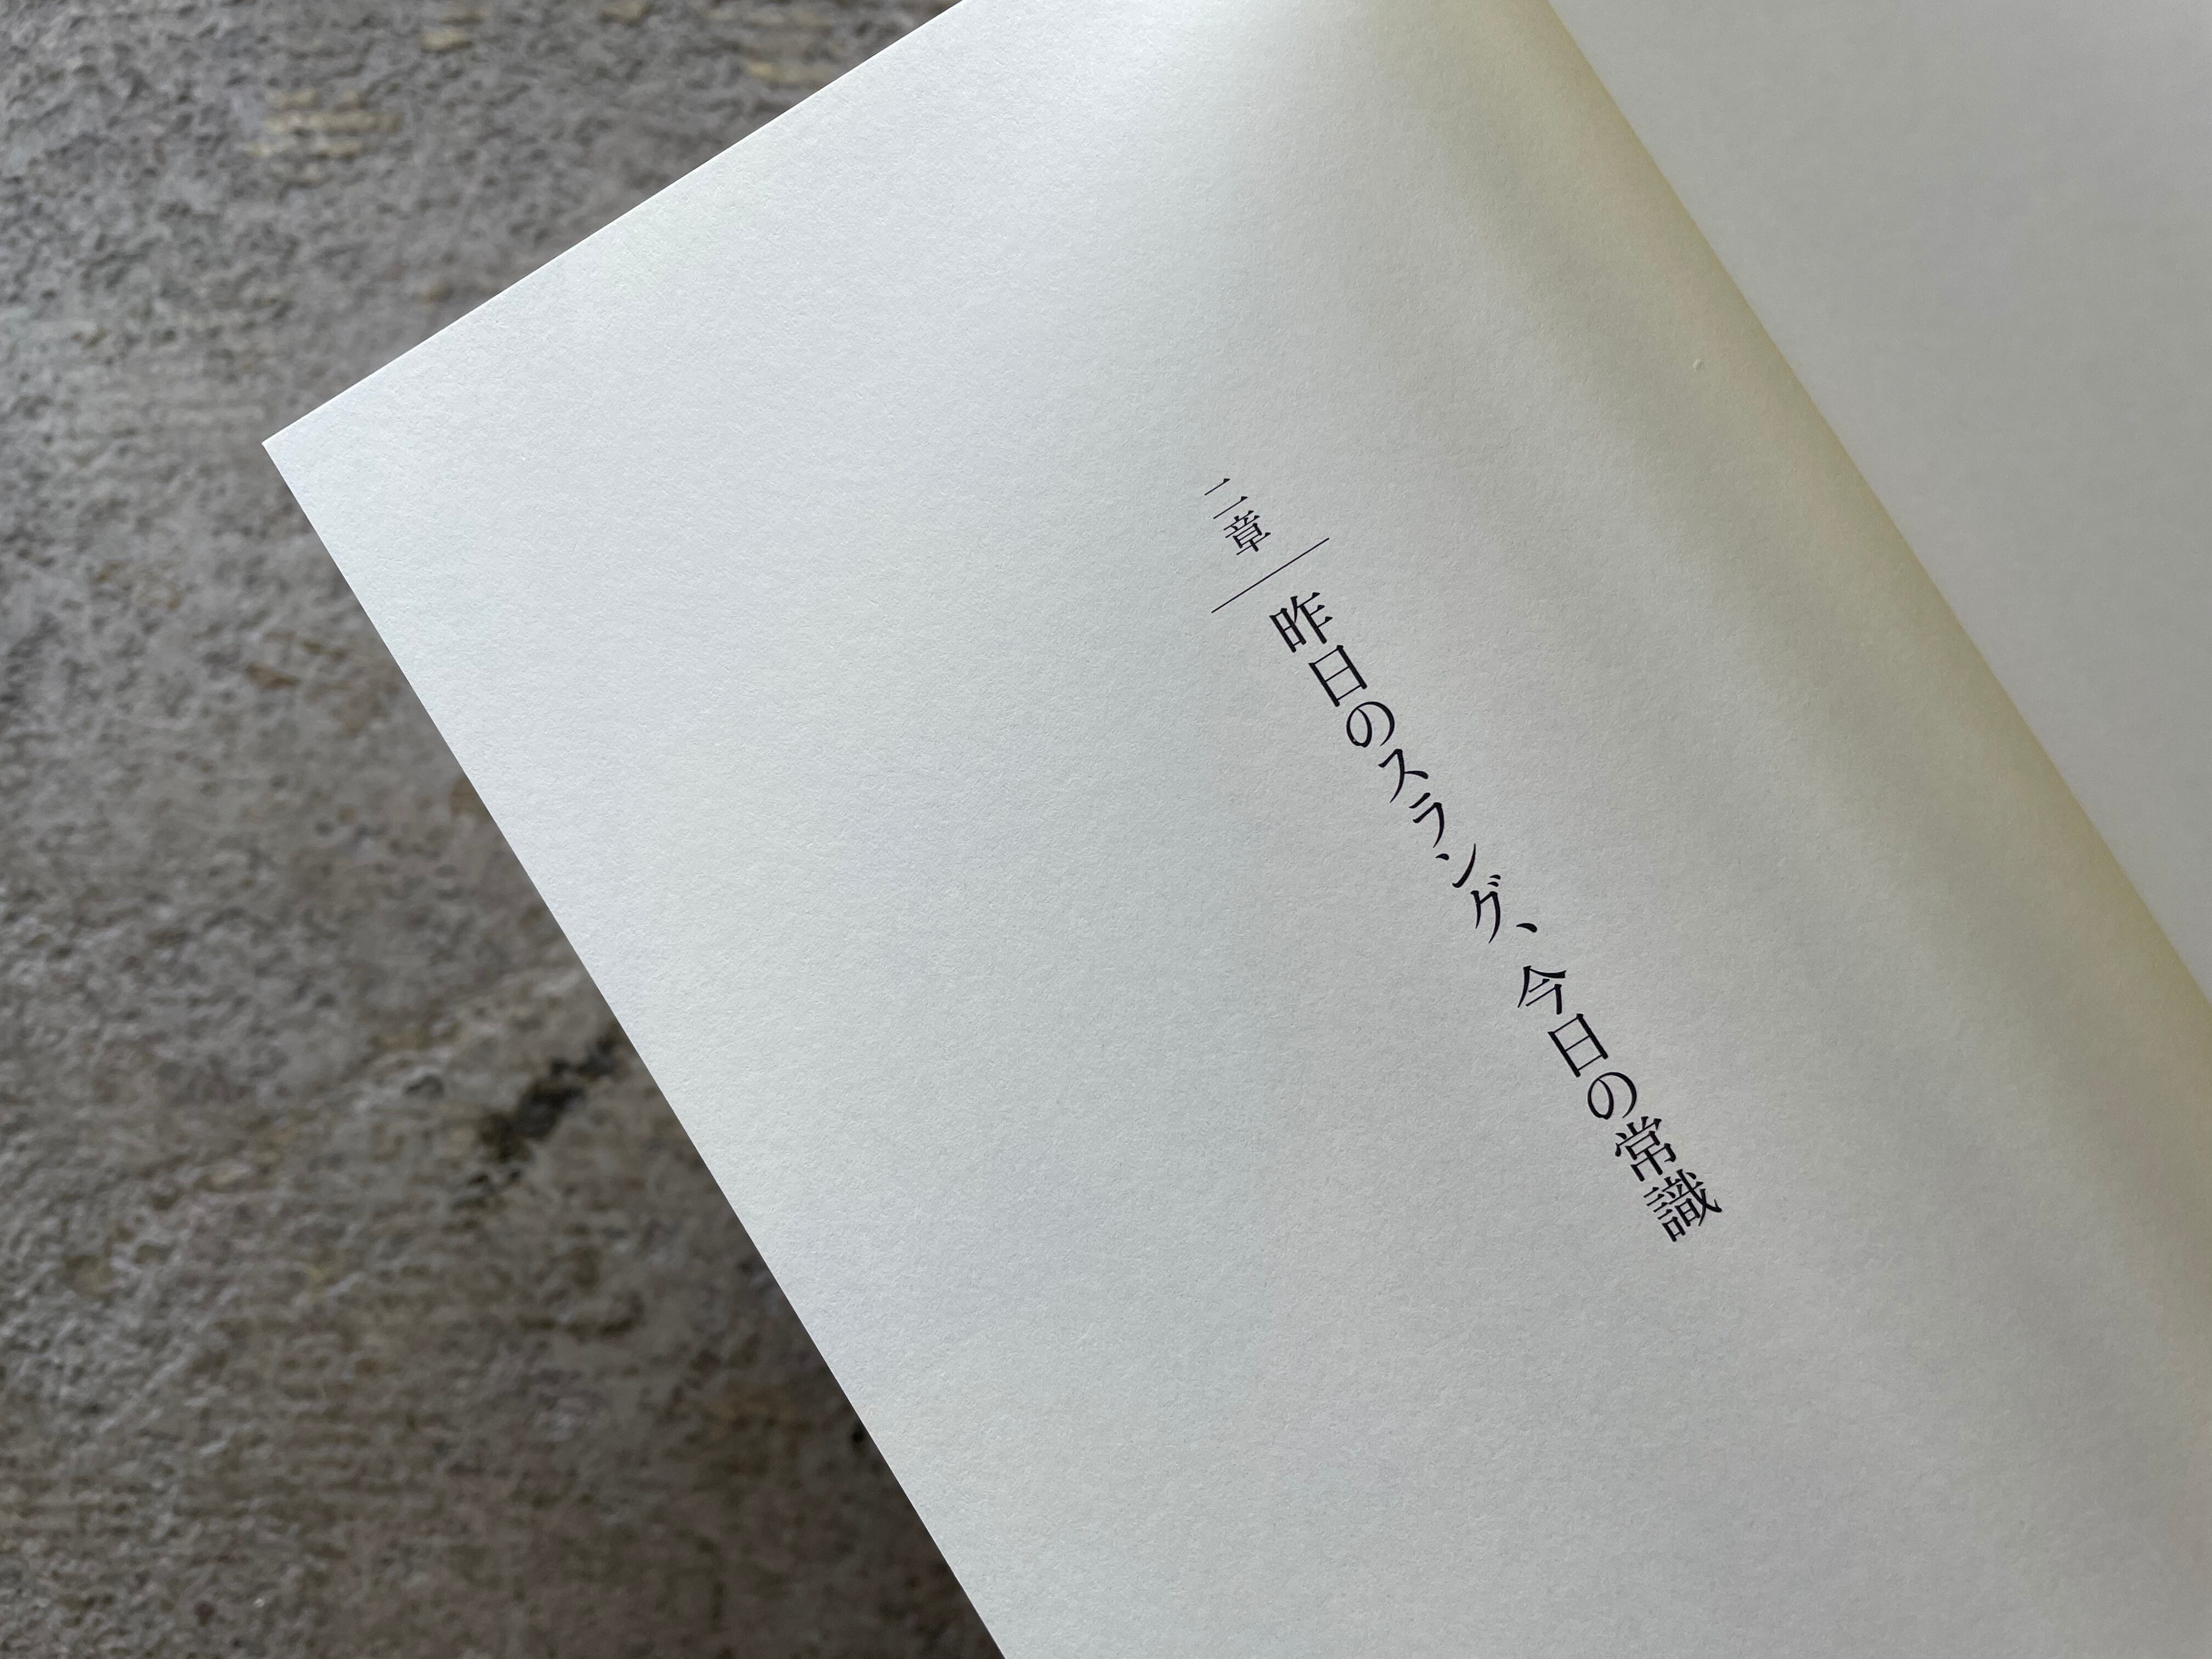 二章
昨日のスラング、今日の常識